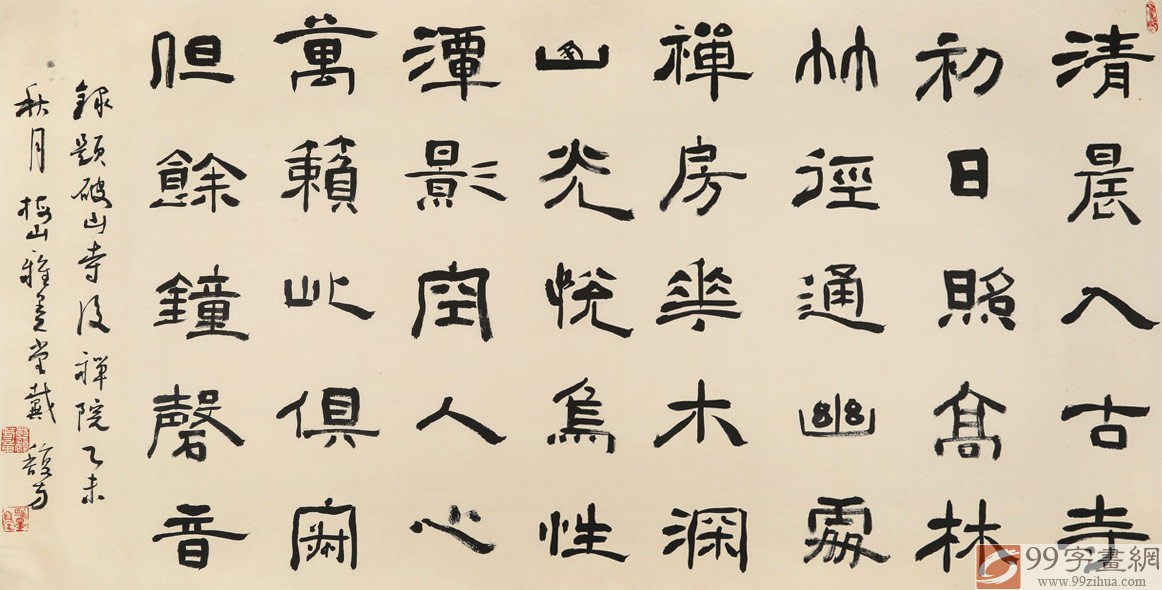 清晨入古寺
初日照高林
竹徑通幽處
禪房華木深
山光悅鳥性
潭影空人心
萬籟此俱寂
但餘鐘磬音
錄題破山寺後禪院乙未
秋月梅山雅堂戴
99字畫網
www.99zihua.com